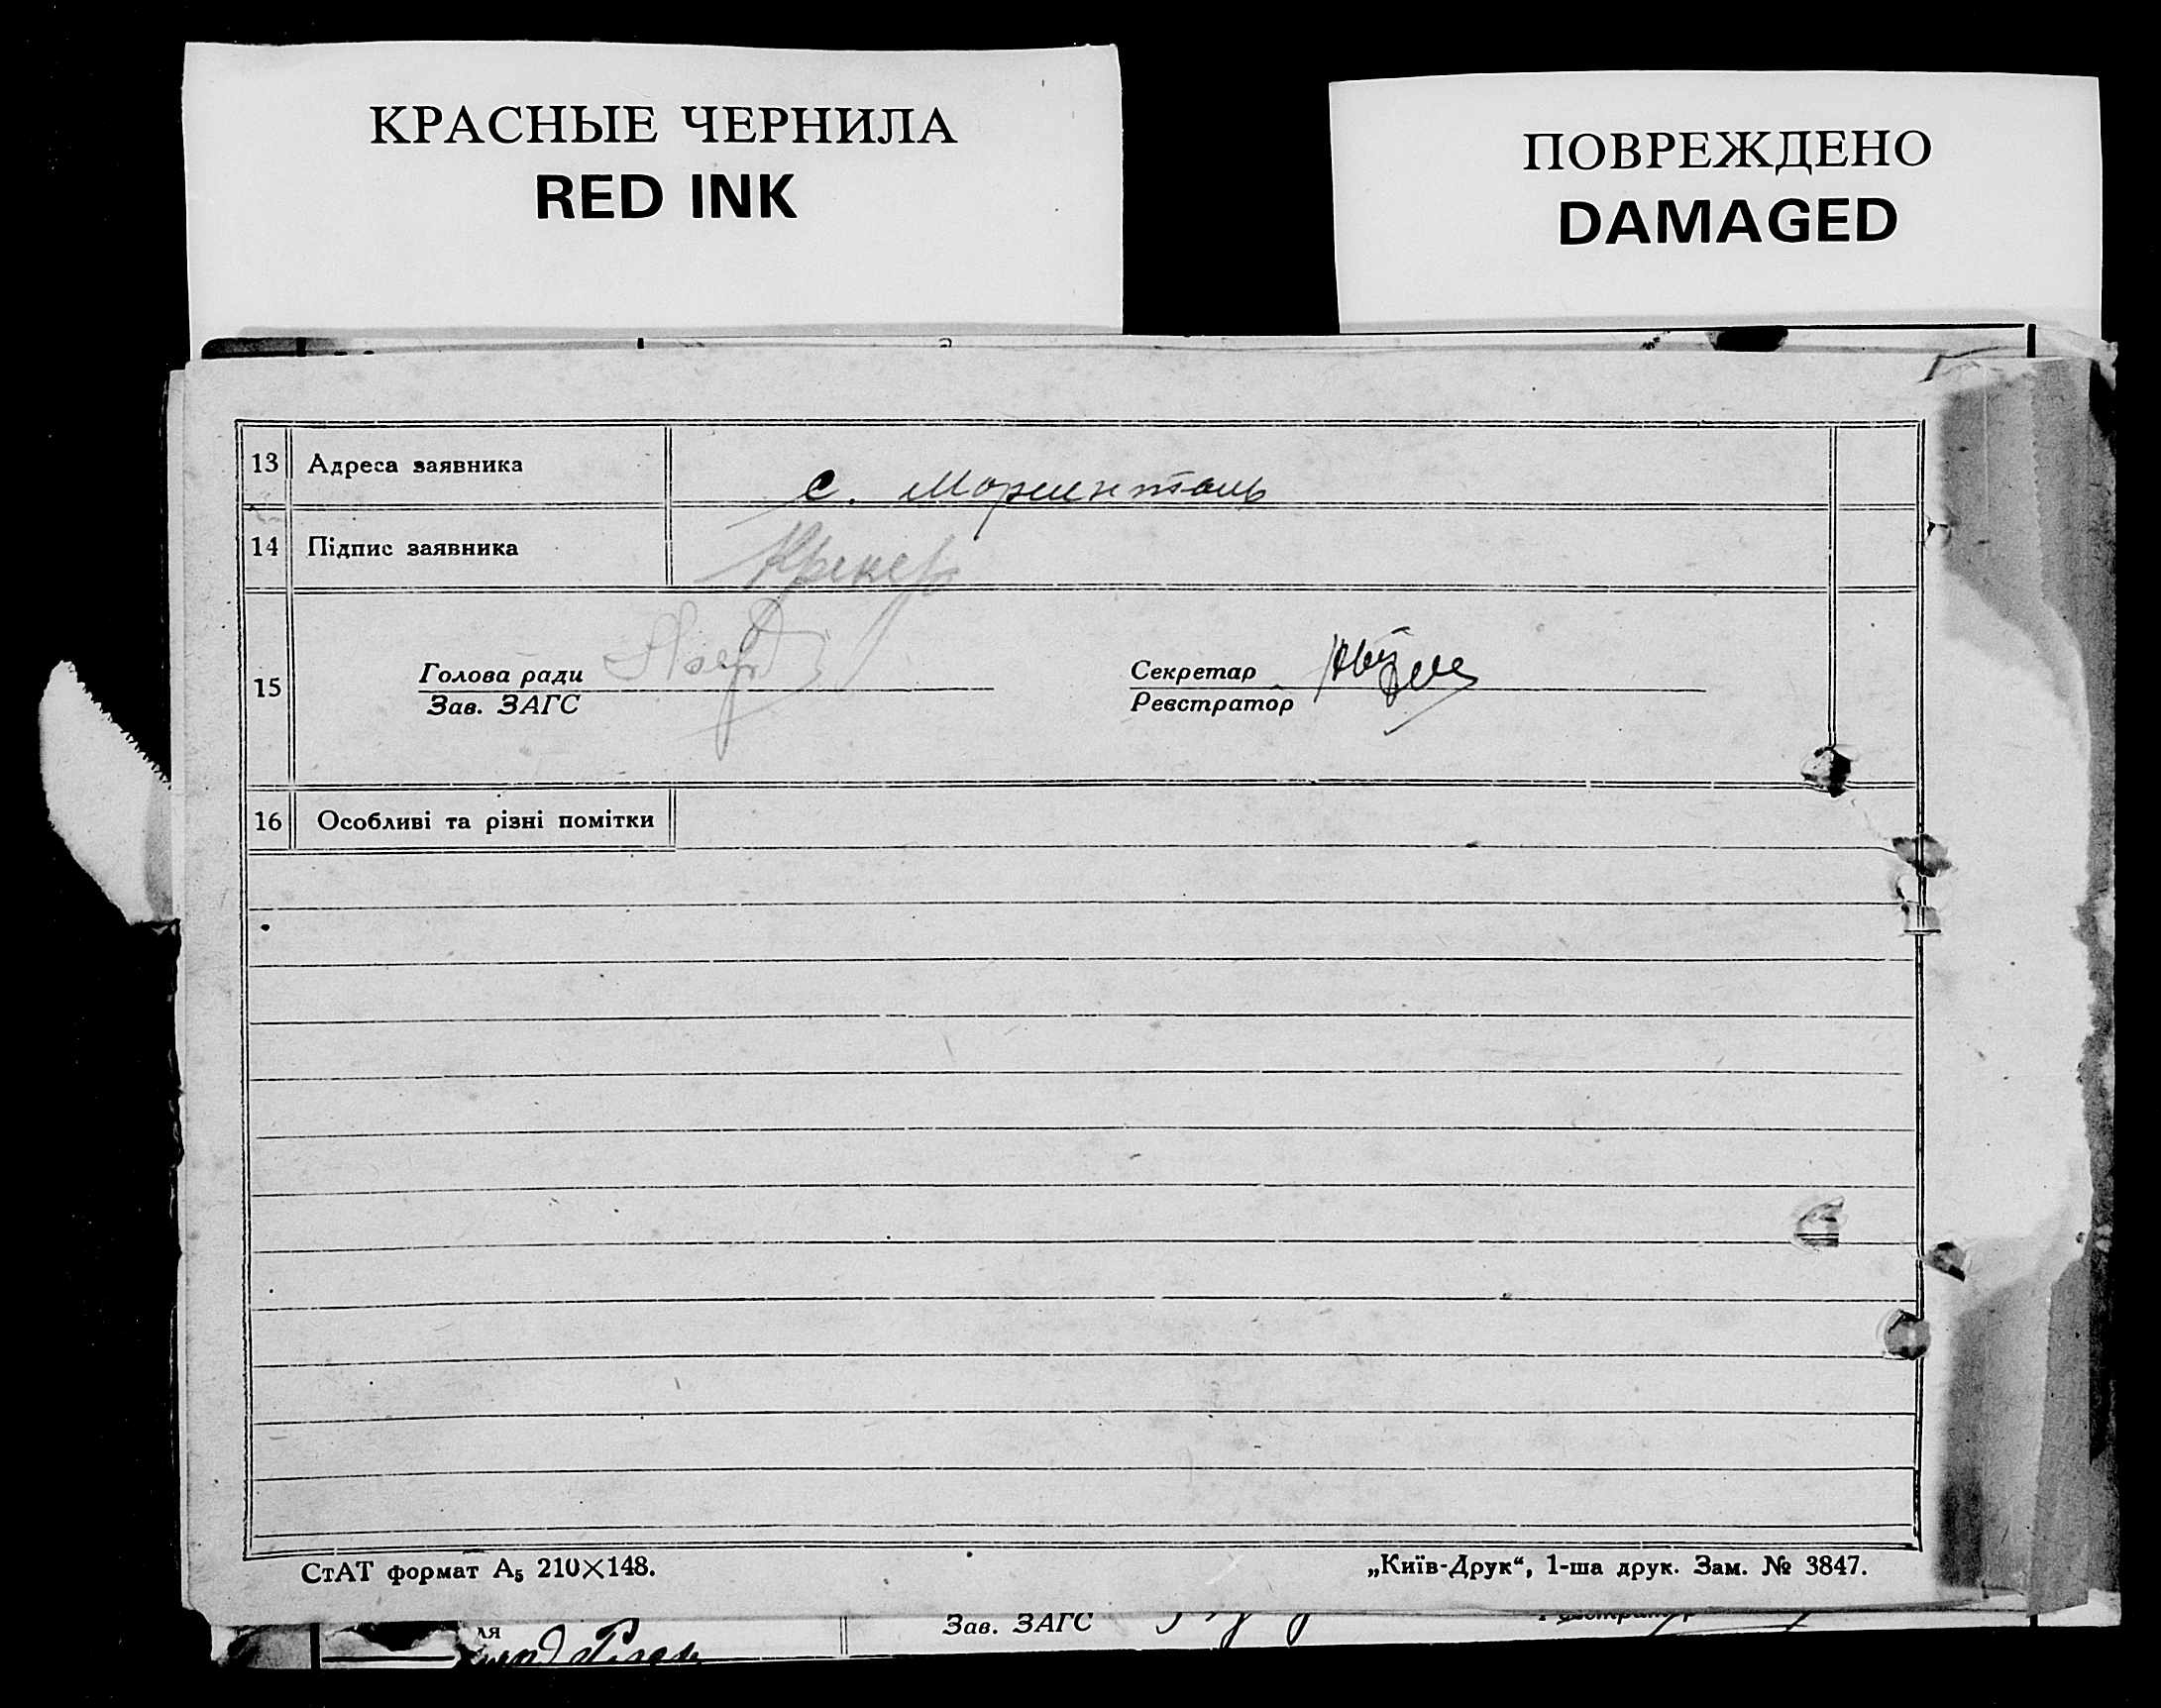 КРАСНЫЕ ЧЕРНИЛА
RED INK
ПОВРЕЖДЕНО
DAMAGED
13 Адреса заявника с. Мариенталь
14 Підпис заявника Крекер
15 Голова ради
Зав. ЗАГС
Секретар
Реєстратор
16 Особливі та різні помітки
СтАТ формат А₅ 210×148.
„Київ-Друк“, 1-ша друк. Зам. № 3847.
Зав. ЗАГС